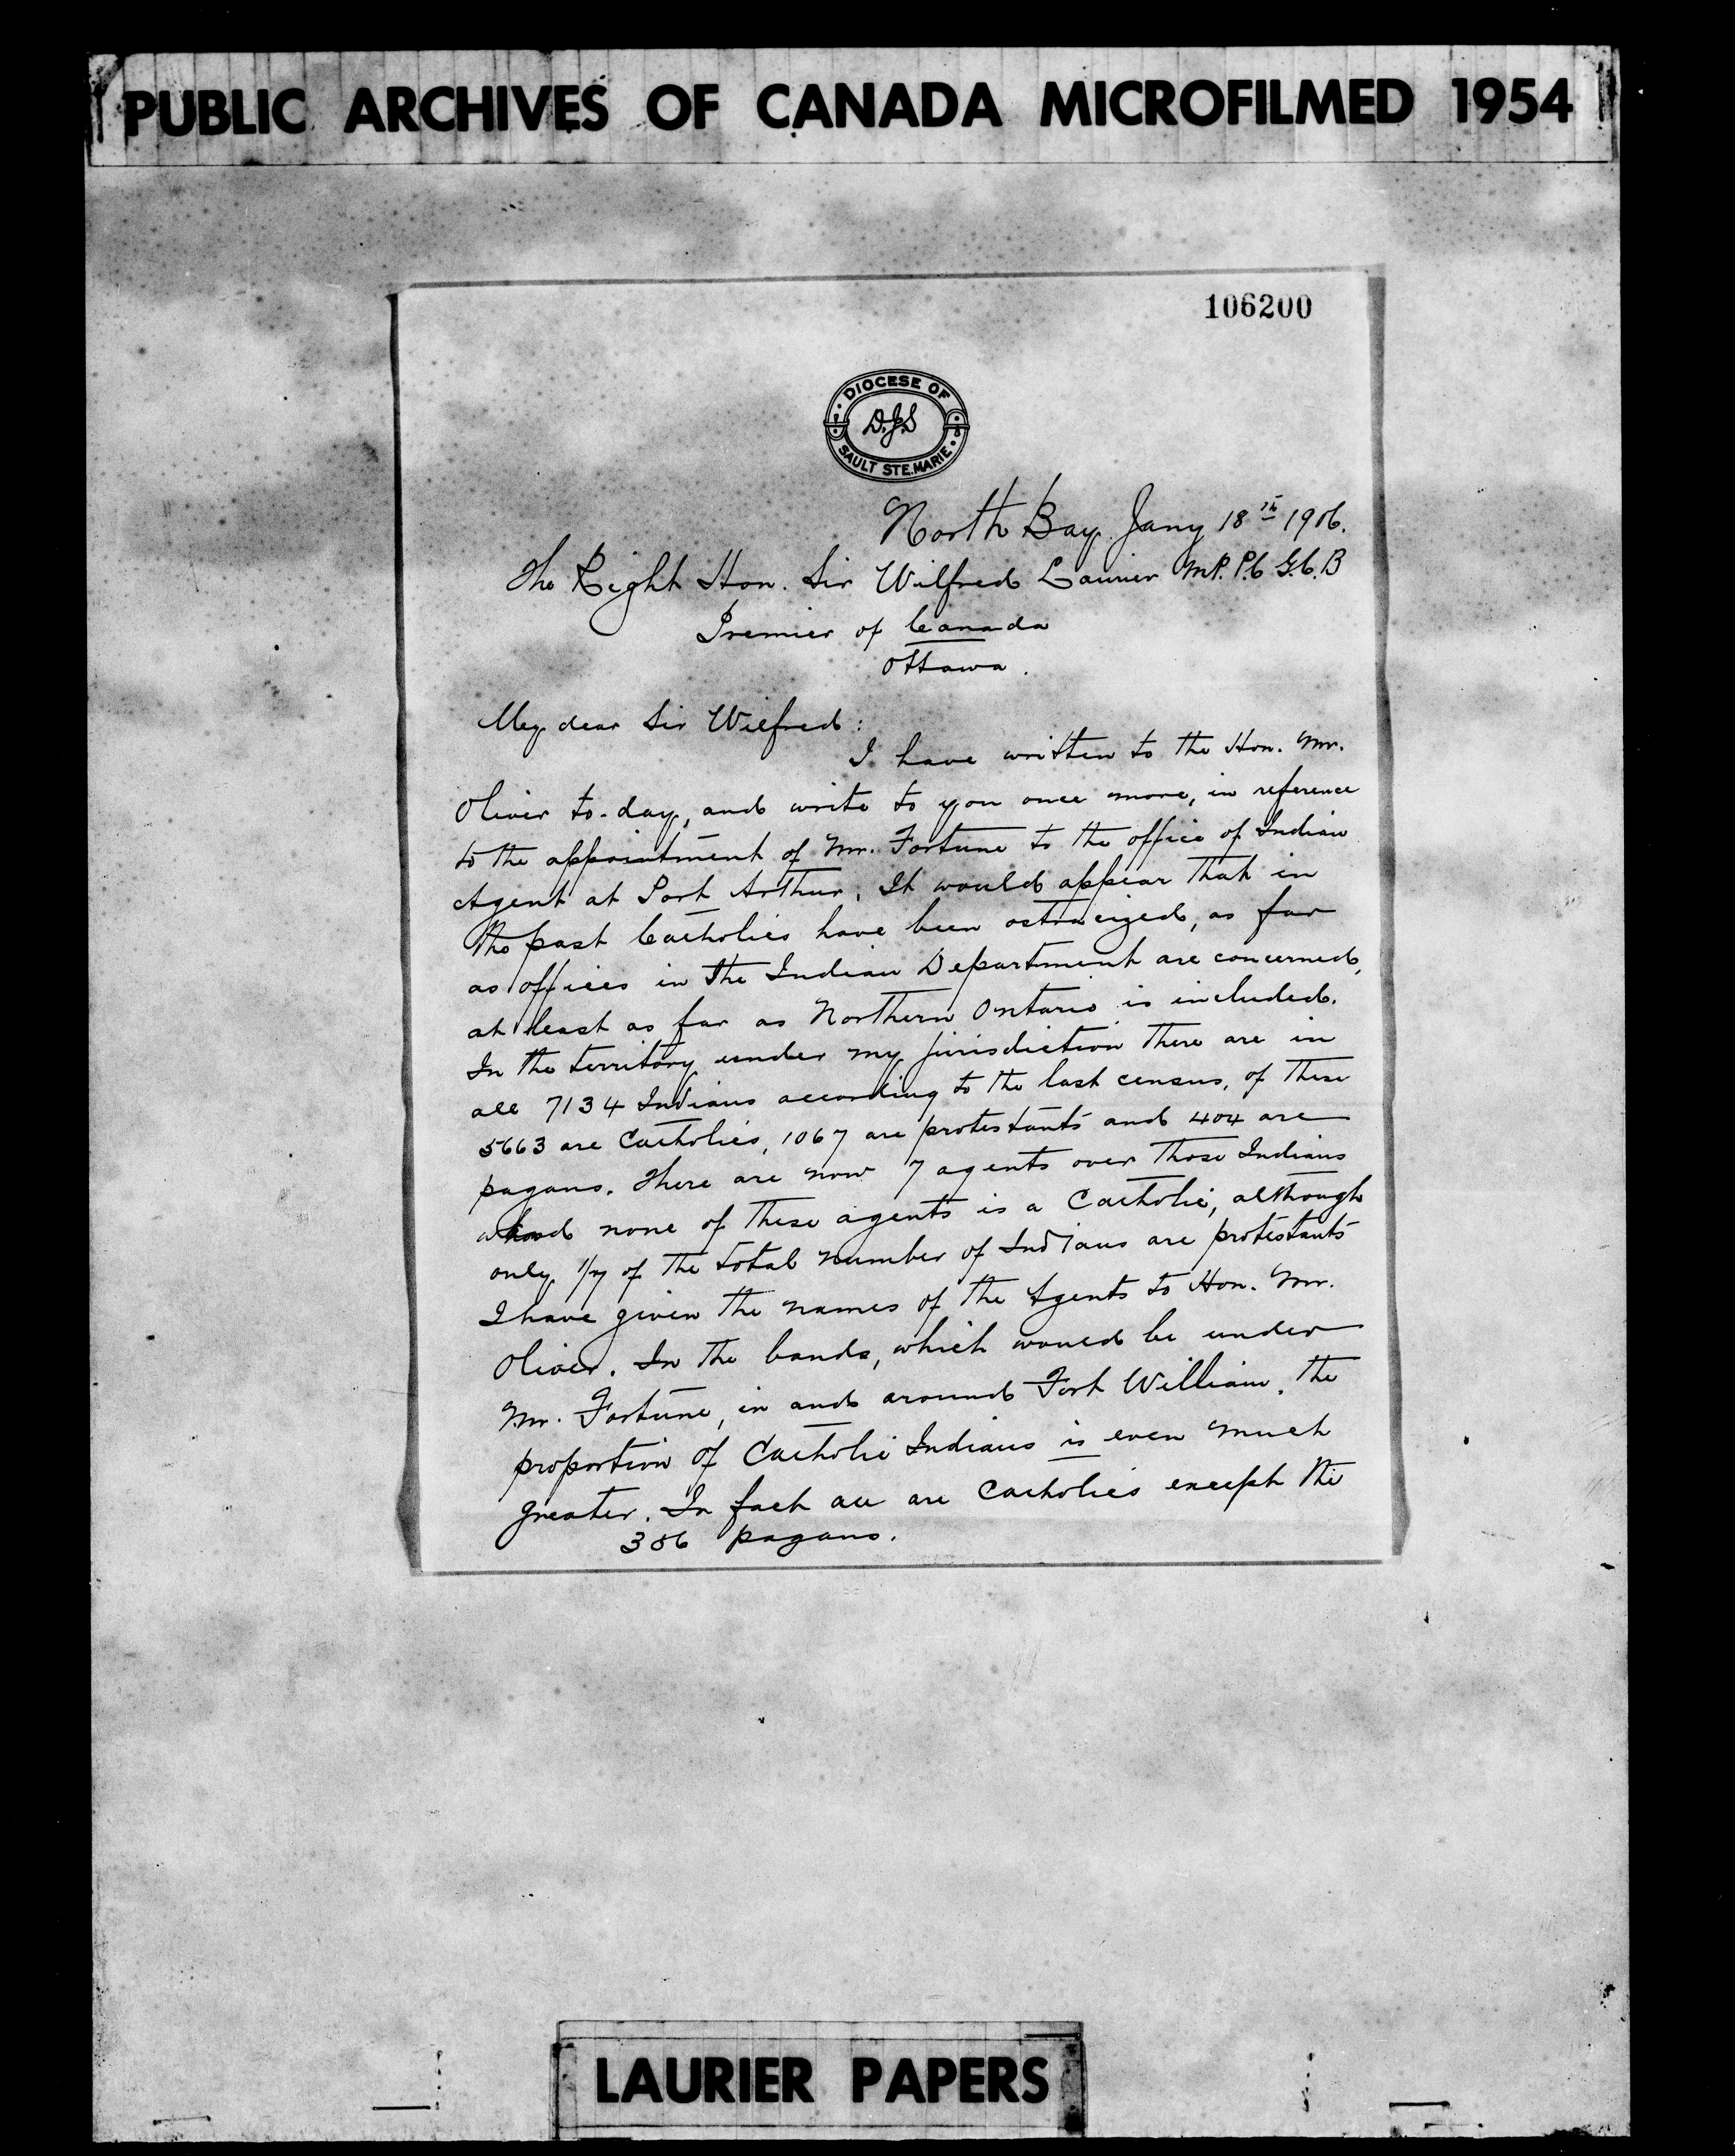 PUBLIC ARCHIVES OF CANADA MICROFILMED 1954
106200
DIOCESE OF
D.J.S
SAULT STE. MARIE.
North Bay Jany 18th 1906.
The Right Hon. Sir Wilfred Laurier M.P. P.C G.C.B
Premier of Canada
Ottawa.
My dear Sir Wilfred:
I have written to the Hon. Mr.
Oliver to-day, and write to you once more, in reference
to the appointment of Mr. Fortune to the office of Indian
Agent at Port Arthur. It would appear that in
the past Catholics have been ostracized, as far
as offices in the Indian Department are concerned,
at least as far as Northern Ontario is included.
In the territory under my jurisdiction there are in
all 7134 Indians according to the last census, of these
5663 are Catholics, 1067 are protestants and 404 are
pagans. There are now 7 agents over those Indians
and none of these agents is a Catholic, although
only 1/7 of the total number of Indians are protestants
I have given the names of the Agents to Hon. Mr.
Oliver. In the bands, which would be under
Mr. Fortune, in and around Fort William, the
proportion of Catholic Indians is even much
greater. In fact all are Catholics except the
386 pagans.
LAURIER PAPERS